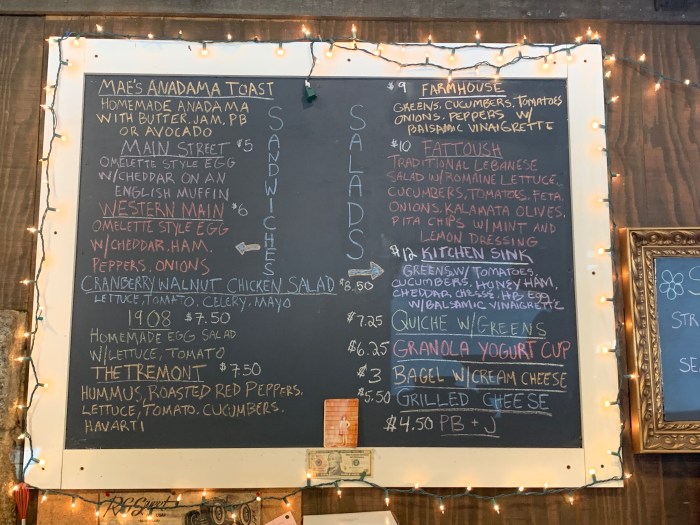 MAE'S ANADAMA TOAST
HOMEMADE ANADAMA
WITH BUTTER, JAM, PB
OR AVOCADO
MAIN STREET $5
OMELETTE STYLE EGG
W/CHEDDAR ON AN
ENGLISH MUFFIN
WESTERN MAIN $6
OMELETTE STYLE EGG
W/CHEDDAR, HAM,
PEPPERS, ONIONS
CRANBERRY WALNUT CHICKEN SALAD $8.50
LETTUCE, TOMATO, CELERY, MAYO
1908 $7.50
HOMEMADE EGG SALAD
W/LETTUCE, TOMATO
THE TREMONT $7.50
HUMMUS, ROASTED RED PEPPERS,
LETTUCE, TOMATO, CUCUMBERS,
HAVARTI
SANDWICHES
SALADS
$9 FARMHOUSE
GREENS, CUCUMBERS, TOMATOES
ONIONS, PEPPERS W/
BALSAMIC VINAIGRETTE
$10 FATTOUSH
TRADITIONAL LEBANESE
SALAD W/ROMAINE LETTUCE,
CUCUMBERS, TOMATOES, FETA,
ONIONS, KALAMATA OLIVES,
PITA CHIPS W/MINT AND
LEMON DRESSING
$12 KITCHEN SINK
GREENS W/ TOMATOES,
CUCUMBERS, HONEY HAM,
CHEDDAR, CHESSE, HB EGG
W/BALSAMIC VINAIGRETTE
$7.25 QUICHE W/GREENS
$6.25 GRANOLA YOGURT CUP
$3 BAGEL W/CREAM CHEESE
$5.50 GRILLED CHEESE
$4.50 PB + J
S
STR
SE